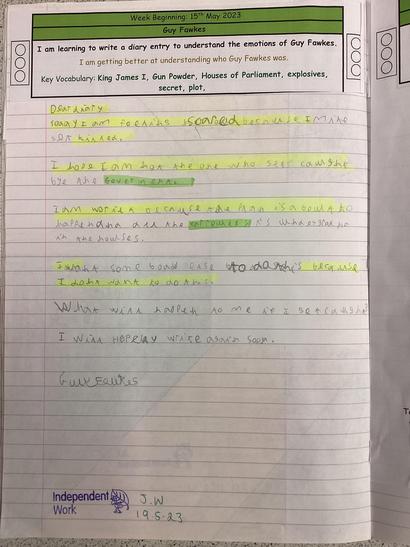 Week Beginning: 15th May 2023
Guy Fawkes
I am learning to write a diary entry to understand the emotions of Guy Fawkes.
I am getting better at understanding who Guy Fawkes was.
Key Vocabulary: King James I, Gun Powder, Houses of Parliament, explosives,
secret, plot,
Dear diary
today I am feeling scared because I mite
get killed.
I hope I am not the one who gets caught
bye the
I am because the plan is about to
all the
in the houses.
I want some body else to do this because
I dont want to do this.
What will happen to me if I get caught
I will write again soon.
Guy Fawkes
Independent
Work
J.W
19.5.23